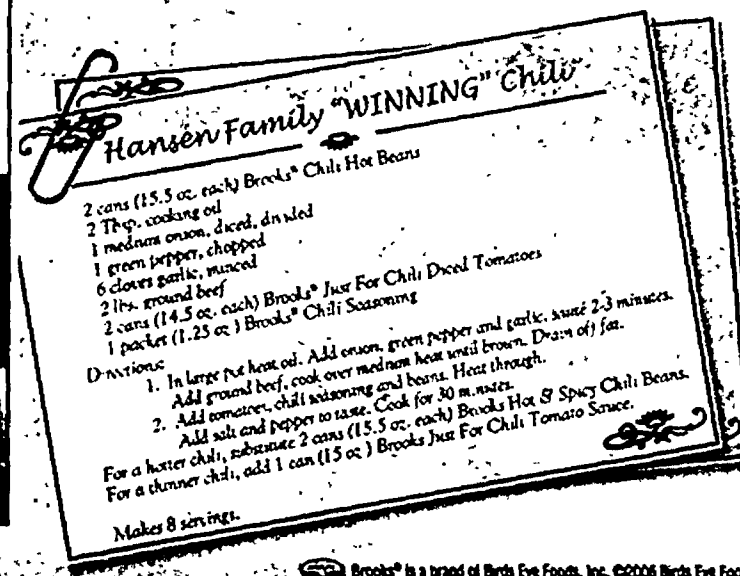 Hansen Family "WINNING" Chili
2 cans (15.5 oz. each) Brooks® Chili Hot Beans
2 Tbsp. cooking oil
1 medium onion, diced, divided
1 green pepper, chopped
6 cloves garlic, minced
2 lbs. ground beef
2 cans (14.5 oz. each) Brooks® Just For Chili Diced Tomatoes
1 packet (1.25 oz.) Brooks® Chili Seasoning
Directions:
1. In large pot heat oil. Add onion, green pepper and garlic, sauté 2-3 minutes.
Add ground beef, cook over medium heat until brown. Drain off fat.
2. Add tomatoes, chili seasoning and beans. Heat through.
Add salt and pepper to taste. Cook for 30 minutes.
For a hotter chili, substitute 2 cans (15.5 oz. each) Brooks Hot & Spicy Chili Beans.
For a thinner chili, add 1 can (15 oz.) Brooks Just For Chili Tomato Sauce.
Makes 8 servings.
Brooks® is a brand of Birds Eye Foods, Inc. ©2006 Birds Eye Foo